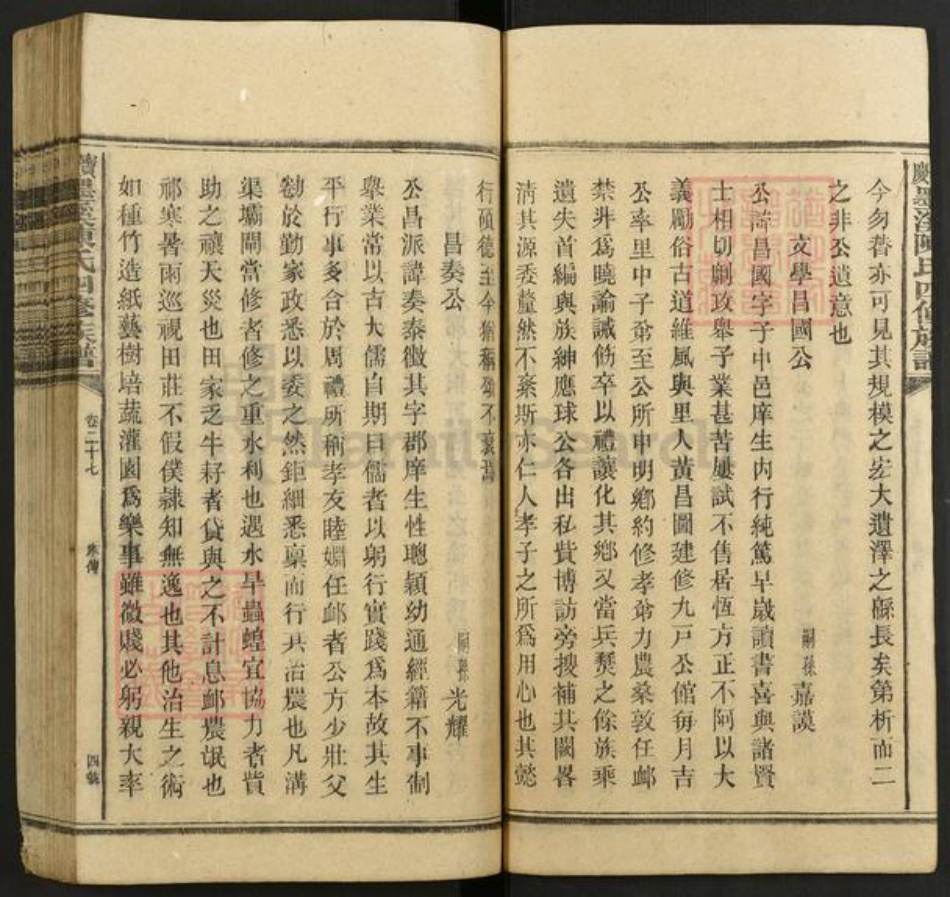 今勿替亦可見其規模之宏大遺澤之緜長矣第析而二
之非公遺意也
文學昌國公
嗣孫嘉謨
公諱昌國字于中邑庠生內行純篤早歲讀書喜與諸賢
士相切劘攻舉子業甚苦屢試不售居恆方正不阿以大
義勵俗古道維風與里人黃昌圖建修九戸公館每月吉
公率里中子弟至公所申明鄉約修孝弟力農桑敦任卹
禁非爲曉諭誡飭卒以禮讓化其鄉又當兵燹之餘族乘
遺失首編與族紳應球公各出私貲博訪旁搜補其闕畧
淸其源委釐然不紊斯亦仁人孝子之所爲用心也其懿
行碩德至今猶稱頌不衰焉
昌奏公
嗣孫光耀
公昌派諱奏泰徵其字郡庠生性聰穎幼通經籍不事制
舉業常以古大儒自期曰儒者以躬行實踐爲本故其生
平行事多合於周禮所稱孝友睦婣任卹者公方少壯父
勌於勤家政悉以委之然鉅細悉稟而行其治農也凡溝
渠壩閘當修者修之重水利也遇水旱蟲蝗宜協力者貲
助之禳天災也田家乏牛耔者貸與之不計息卹農氓也
祁寒暑雨巡視田莊不假僕隷知無逸也其他治生之術
如種竹造紙藝樹培蔬灌園爲樂事雖微賤必躬親大率
墨溪陳氏四修族譜
卷二十七